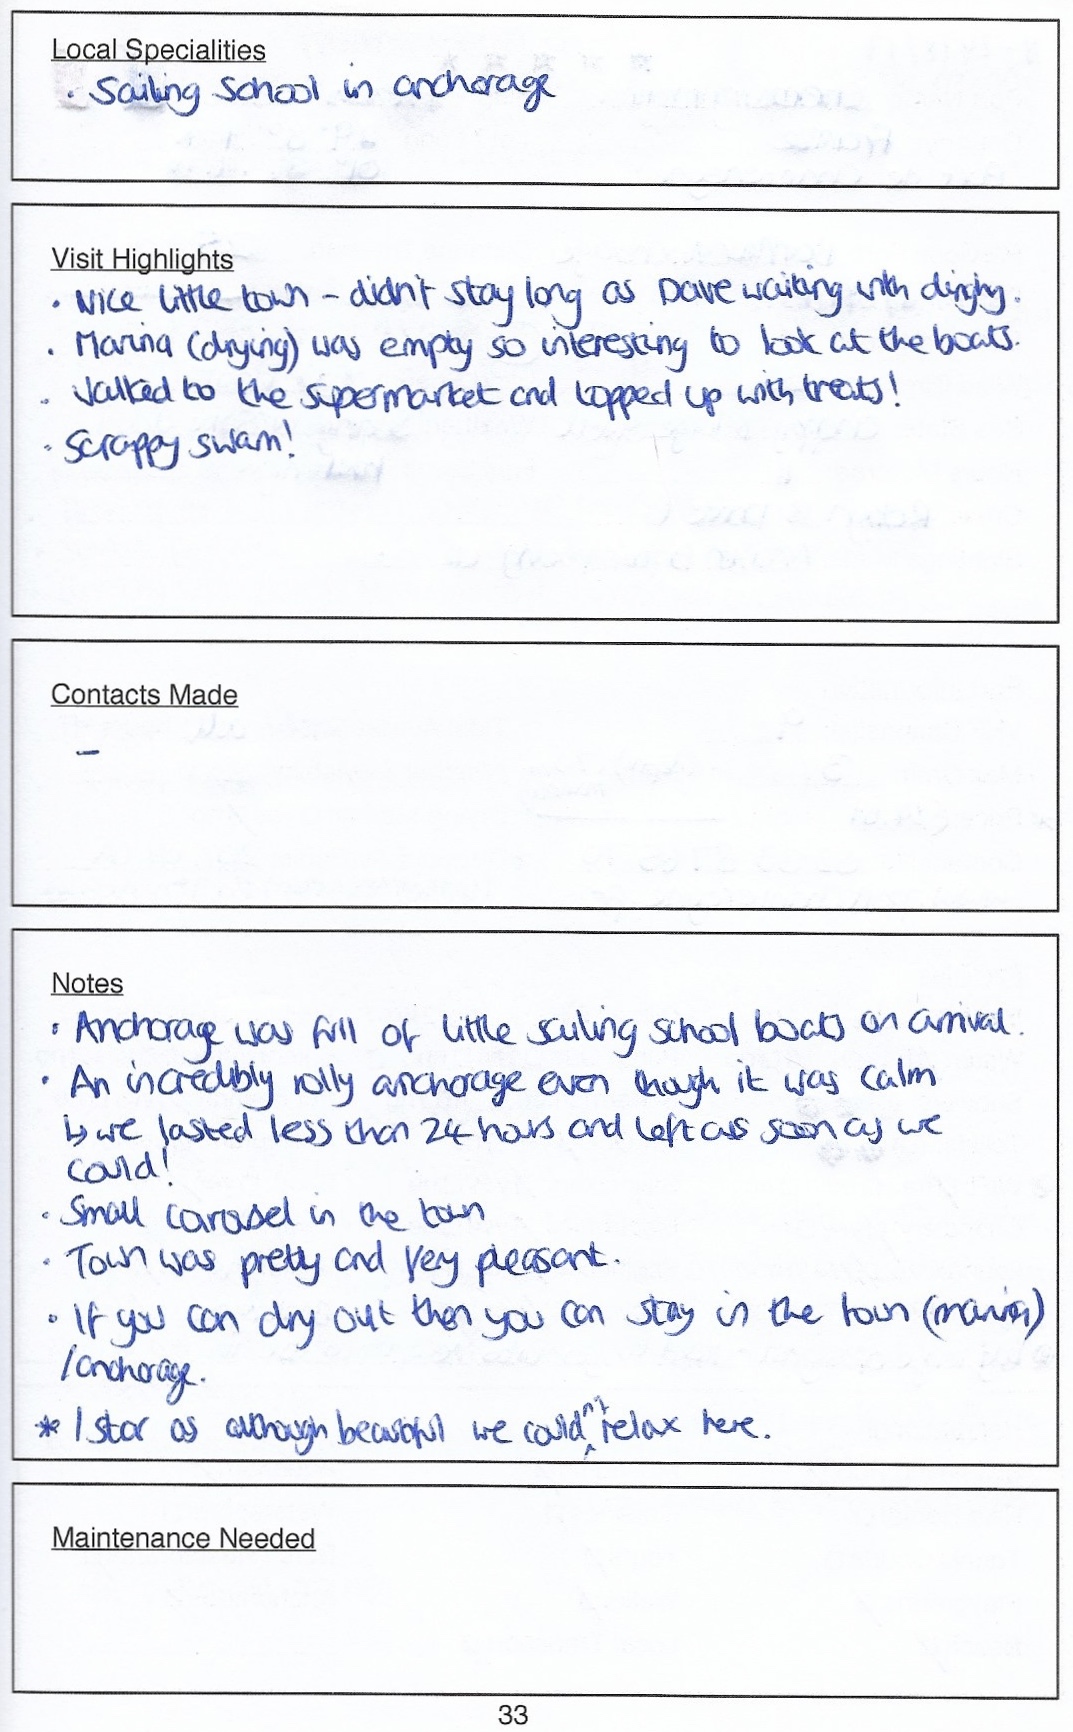 Local Specialities
· Sailing School in anchorage
Visit Highlights
· Nice little town - didn't stay long as Dave waiting with dinghy.
· Marina (drying) was empty so interesting to look at the boats.
· Walked to the supermarket and topped up with treats!
· Scrappy swam!
Contacts Made
-
Notes
· Anchorage was full of little sailing school boats on arrival.
· An incredibly rolly anchorage even though it was calm
↳ we lasted less than 24 hours and left as soon as we
could!
· Small carousel in the town
· Town was pretty and very pleasant.
· If you can dry out then you can stay in the town (marina)
/anchorage.
* 1 star as although beautiful we couldn't relax here.
Maintenance Needed
33